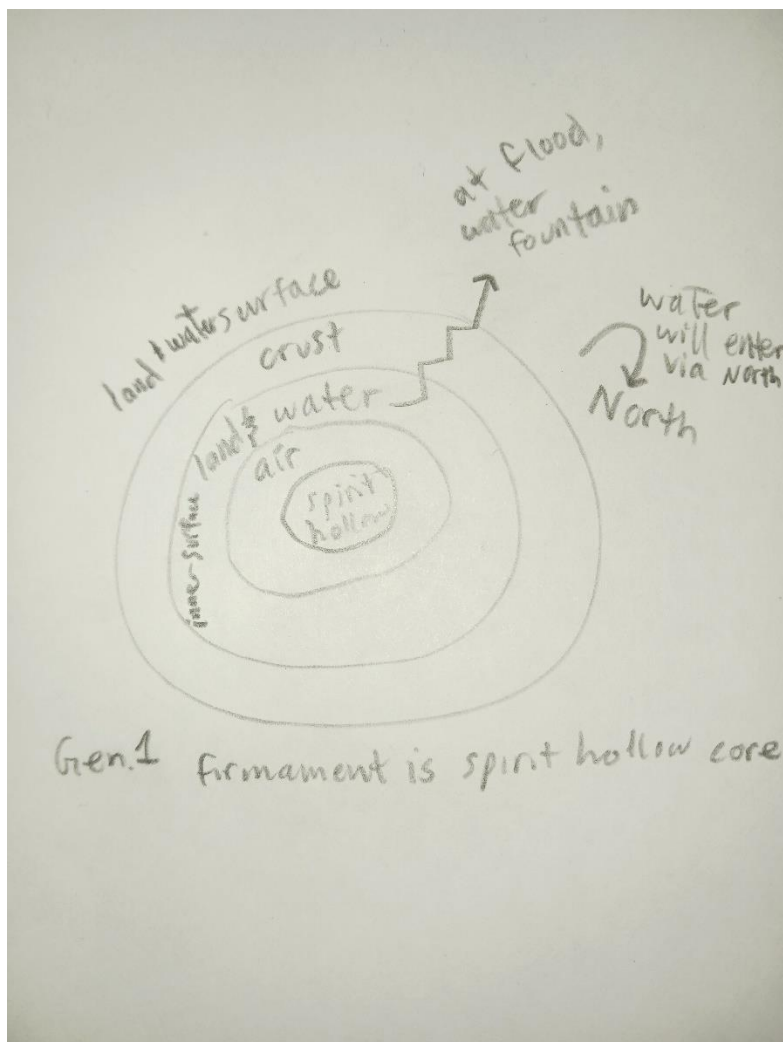 at flood,
water
fountain
water
will enter
via North
North
land & water surface
crust
land & water
air
spirit
hollow
inner-surface
Gen.1 firmament is spirit hollow core